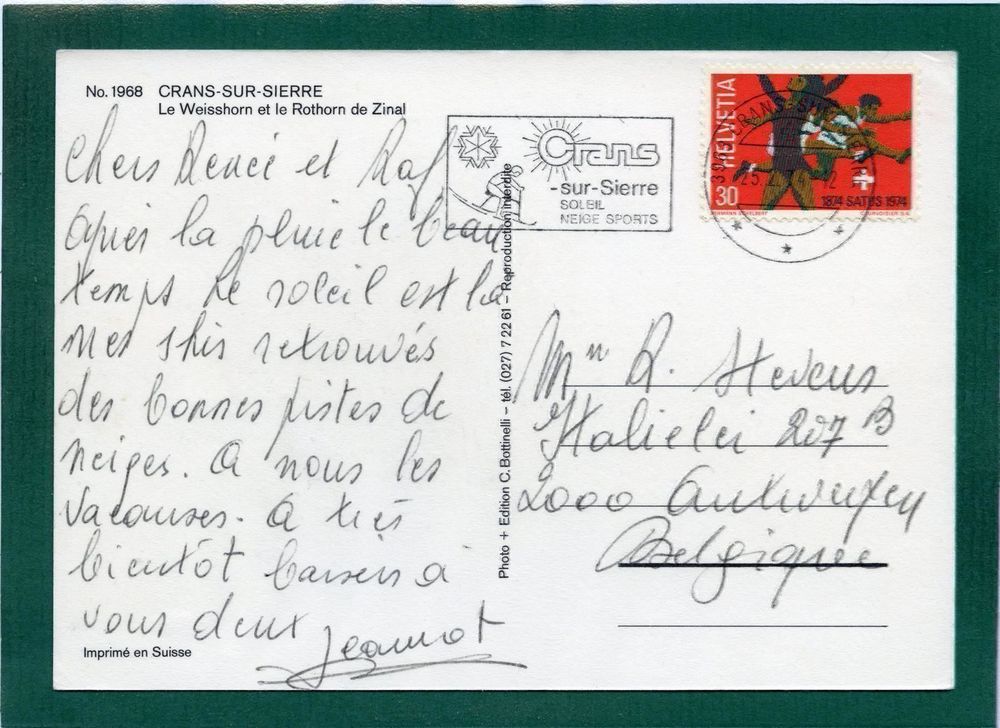 No. 1968 CRANS-SUR-SIERRE
Le Weisshorn et le Rothorn de Zinal
Chers Renée et Raf,
après la pluie le beau
temps le soleil est là
mes skis retrouvés
des bonnes pistes de
neiges. A nous les
vacanses. A très
bientôt baisers à
vous deux
Jeannot
Imprimé en Suisse
Photo + Edition C. Bottinelli – tél. (027) 7 22 61 – Reproduction interdite
Crans
-sur-Sierre
SOLEIL
NEIGE SPORTS
HELVETIA
30
1874 SATUS 1974
HERMANN SCHELBERT
COURVOISIER S.A.
CRANS-SUR-SIERRE
R. Stevens
Italielei 207 B
2000 Antwerpen
Belgique